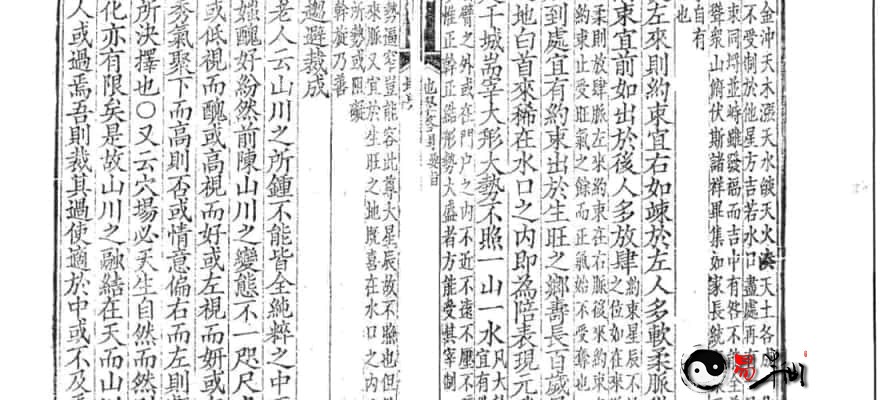 金沖天木漲天水燄天火湊天土各成
不受制於他星方吉若水口盡處再
束同埒並峙雖發福而吉中有咎不能全
聲衆山俯伏斯諸祥畢集如家長統
自有
也
左來則約束宜右如竦於左人多軟柔脈
東宜前如出於後人多放肆
約束星辰不
之位如在來
柔則放肆脈左來約束在右脈後來約束
約束止受旺氣之餘而正氣始不受奪也
到處宜有約束出於生旺之鄉壽長百歲
地白首來稀在水口之內即為陪表現元
文千城耑宰大形大勢不照一山一水
凡大
宜有
臂之外或在門戶之內不近不遠不壓不
惟正幹正龍形勢大盛者方能受其宰制
勢逼窄豈能容此尊大星辰故不臉也但
來脈又宜於生旺之地既喜在水口之內
所勢或阻礙
幹旋乃善
趨避裁成
老人云山川之所鍾不能皆全純粹之中
媸醜好紛然前陳山川之變態不一咫尺
或低視而醜或高視而好或左視而妍或
秀氣聚下而高則否或情意偏右而左則
所決擇也○又云穴場必天生自然而然
化亦有限矣是故山川之融結在天而山
人或過焉吾則裁其過使適於中或不及